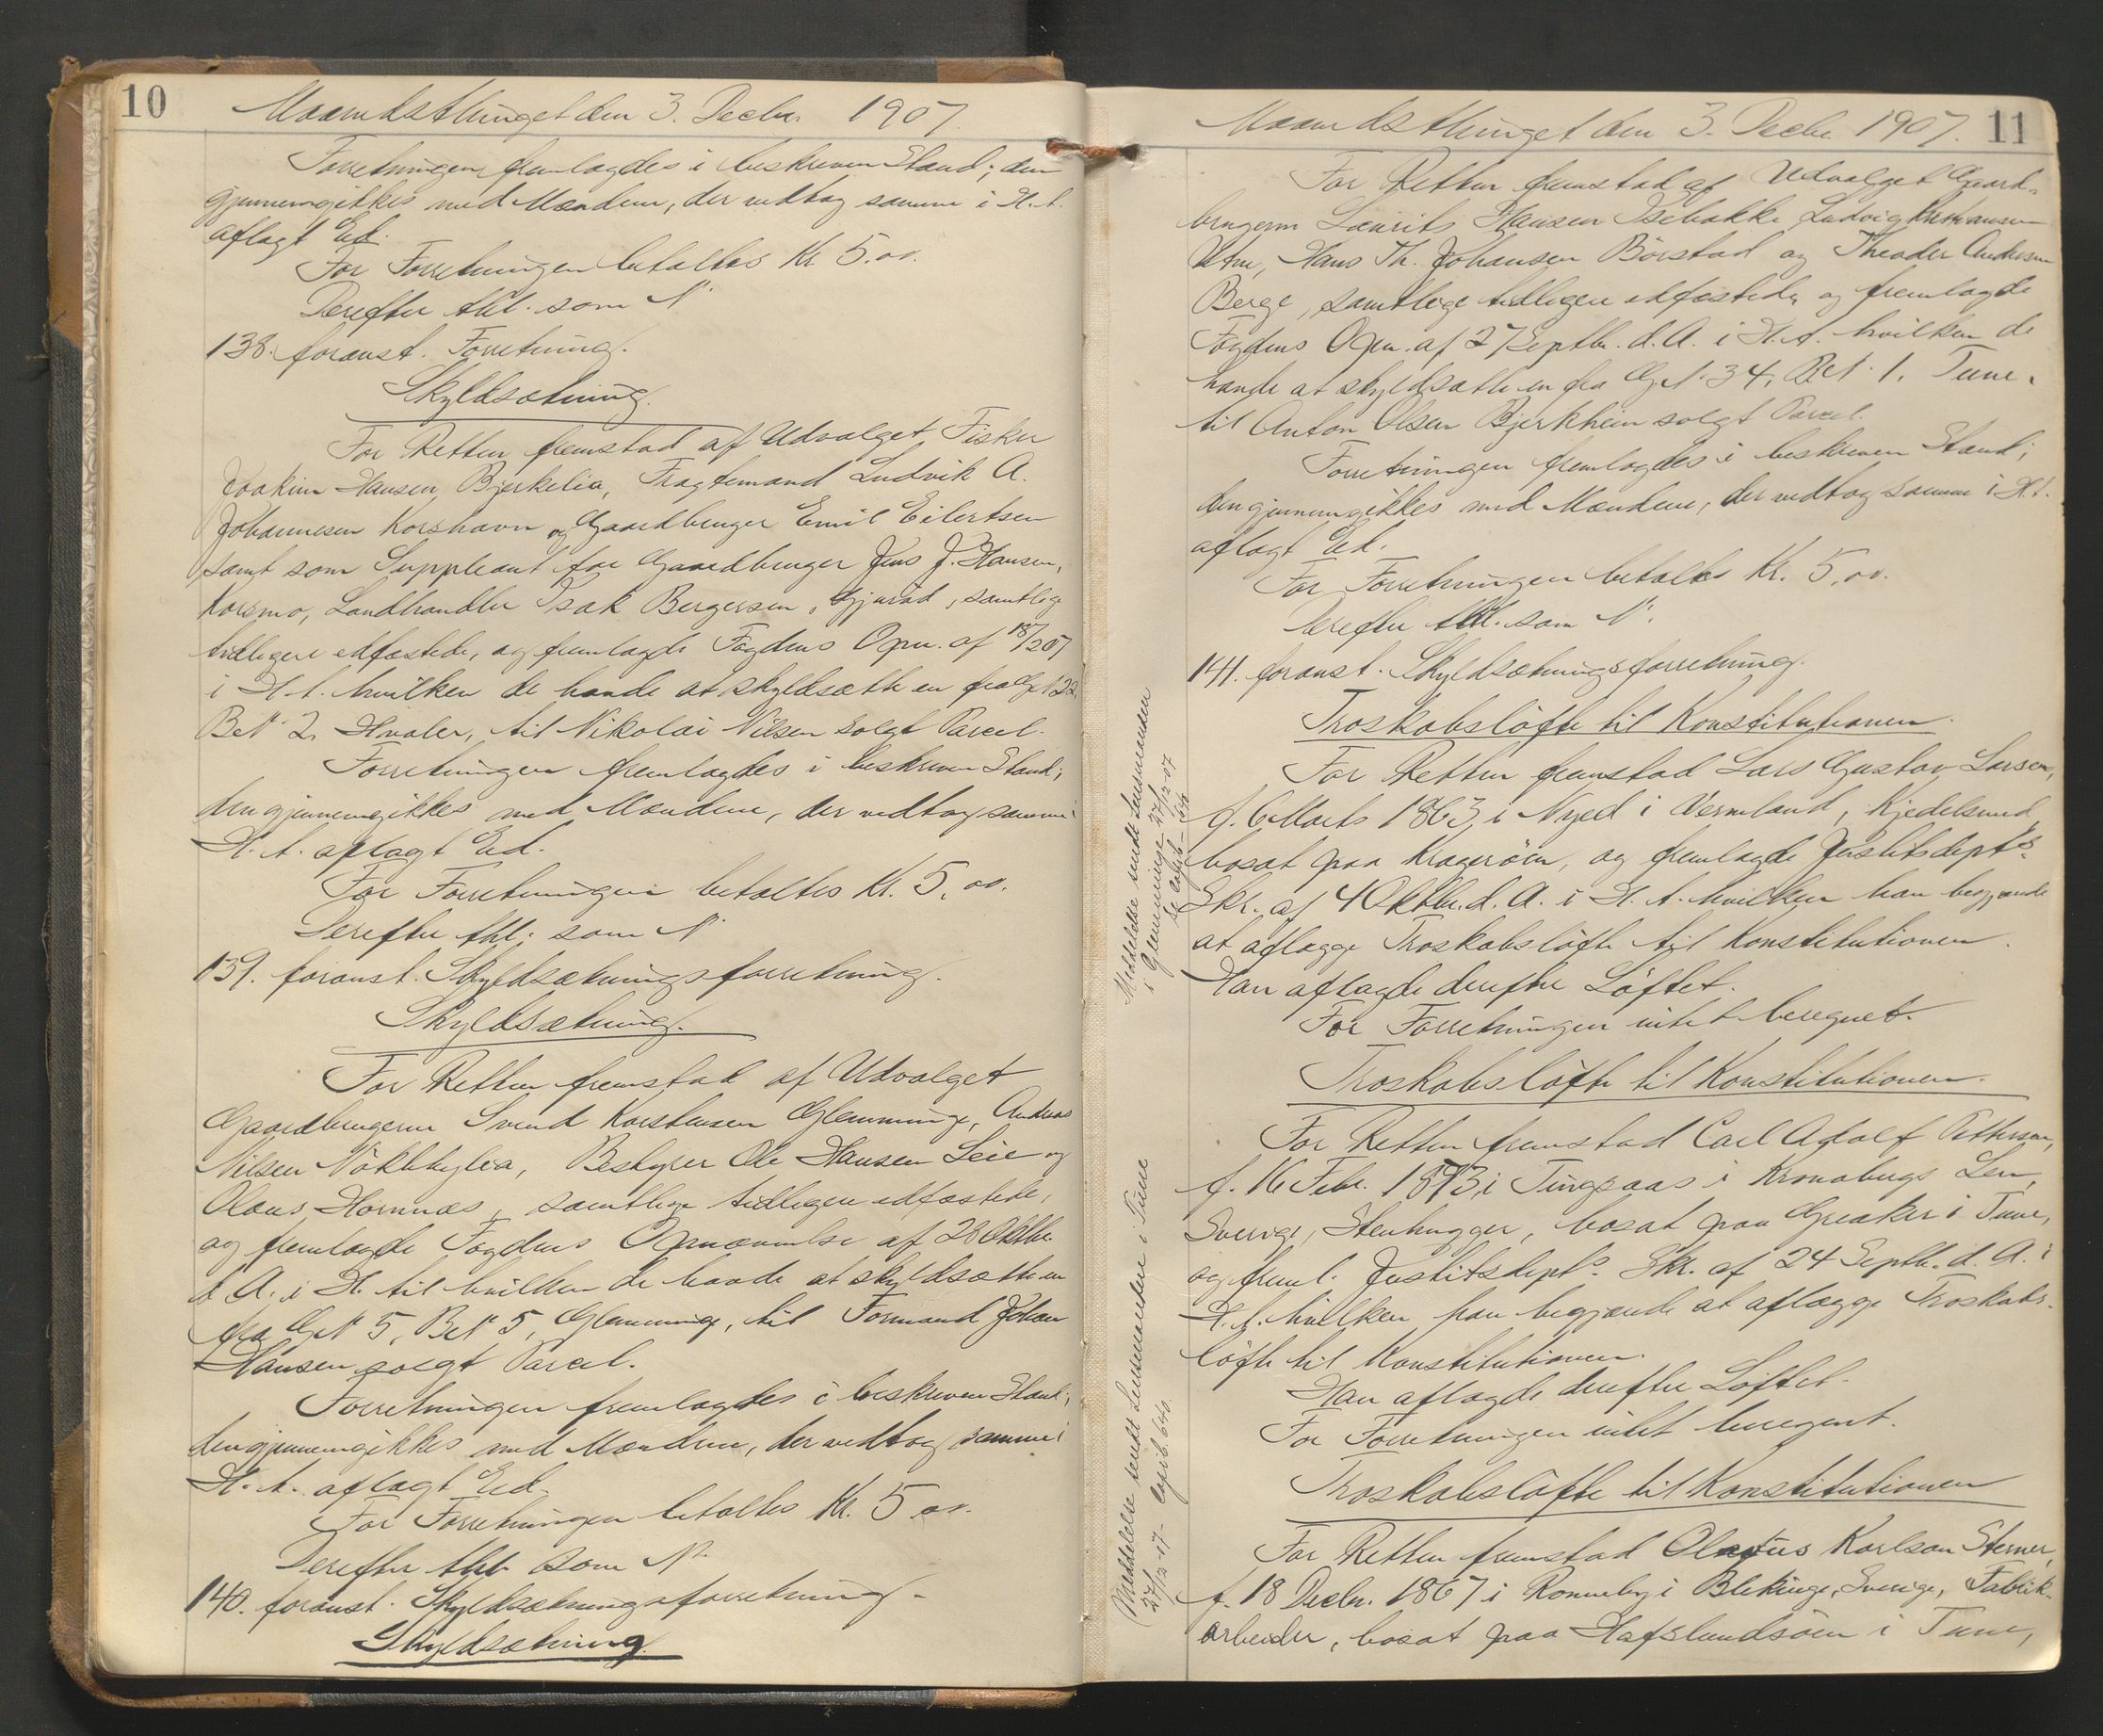 10
Maanedsthinget den 3. Decbr. 1907.
Forretningen fremlagdes i beskreven Stand; den
gjennemgikkes med Mændene, der vedtog samme i H. t.
aflagt Ed.
For Forretningen betaltes Kr. 5.00.
Derefter thl. som N°
138. foranst. Forretning.
Skyldsætning.
For Retten fremstod af Udvalget Fisker
Joakim Hansen, Bjerkelia, Fragtemand Ludvik A.
Johannesen Korshavn og Gaardbruger Emil Eilertsen
samt som Suppleant for Gaardbruger Jens J. Hansen,
Korsmo, Landhandler Isak Bergersen, samtlige
tidligere edfæstede, og fremlagde Fogdens Opn. af
i H. t. hvilken de havde at skyldsætte en fra
B N° 2, Hvaler, til Nikolai Nilsen solgt Parcel.
Forretningen fremlagdes i beskreven Stand;
den gjennemgikkes med Mændene, der vedtog samme i
H. t. aflagt Ed.
For Forretningen betaltes Kr. 5.00.
Derefter thl. som N°
139. foranst. Skyldsætningsforretning.
Skyldsætning.
For Retten fremstod af Udvalget
Gaardbrugerne Svend Karstensen Glemminge, Andreas
Nilsen Nøkkleglia, Bestyrer Ole Hansen Leie og
Olaus Hornnæs, samtlige tidligere edfæstede,
og fremlagde Fogdens Opnævnelse af 28 Oktbr.
d. A. i H. til hvilken de havde at skyldsætte en
fra G N° 5, B N° 5, Glemminge, til Formand Johan
Hansen solgt Parcel.
Forretningen fremlagdes i beskreven Stand;
den gjennemgikkes med Mændene, der vedtog samme i
H. t. aflagt Ed.
For Forretningen betaltes Kr. 5.00.
Derefter thl. som N°
140. foranst. Skyldsætningsforretning.
Skyldsætning.
Maanedsthinget den 3. Decbr. 1907. 11
For Retten fremstod af Udvalget Gaard-
brugerne Laurits Hansen Isebakke, Ludvig
Utne, Hans Th. Johansen Börstad og Theodor Andersen
Berge, samtlige tidligere edfæstede, og fremlagde
Fogdens Opn. af 27 Septbr. d. A. i H. t. hvilken de
havde at skyldsætte en fra G N° 34, B N° 1, Tune,
til Anton Olsen Bjerkheim solgt Parcel.
Forretningen fremlagdes i beskreven Stand;
den gjennemgikkes med Mændene, der vedtog samme i H. t.
aflagt Ed.
For Forretningen betaltes Kr. 5.00.
Derefter thl. som N°.
141. foranst. Skyldsætningsforretning.
Troskabslöfte til Konstitutionen.
For Retten fremstod Lars Gustav Larsen,
f. 6 Marts 1863 i Nyed i Vermland, Kjedelsmed,
bosat paa Kragerøen, og fremlagde Justitsdepts.
Skr. af 4 Oktbr. d. A. i H. t. hvilken han begjærede
at aflægge Troskabslöfte til Konstitutionen.
Han aflagde derefter Löftet.
For Forretningen intet beregnet.
Meddelelse sendt Lensmanden
i Glemminge 27/12-07
Troskabslöfte til Konstitutionen.
For Retten fremstod Carl Adolf Petterson,
f. 16 Febr. 1873 i Tingsaas i Kronobergs Len,
Sverige, Stenhugger, bosat paa Greaker i Tune,
og freml. Justitsdepts. Skr. af 24 Septb. d. A. i
H. t. hvilken han begjærede at aflægge Troskabs-
löfte til Konstitutionen.
Han aflagde derefter Löftet.
For Forretningen intet beregnet.
Meddelelse sendt Lensmanden i Tune
27/12-07
Troskabslöfte til Konstitutionen
For Retten fremstod Karlson Sterner,
f. 18 Decbr. 1867 i Ronneby i Blekinge, Sverige, Fabrik-
arbeider, bosat paa Hafslundsöen i Tune,